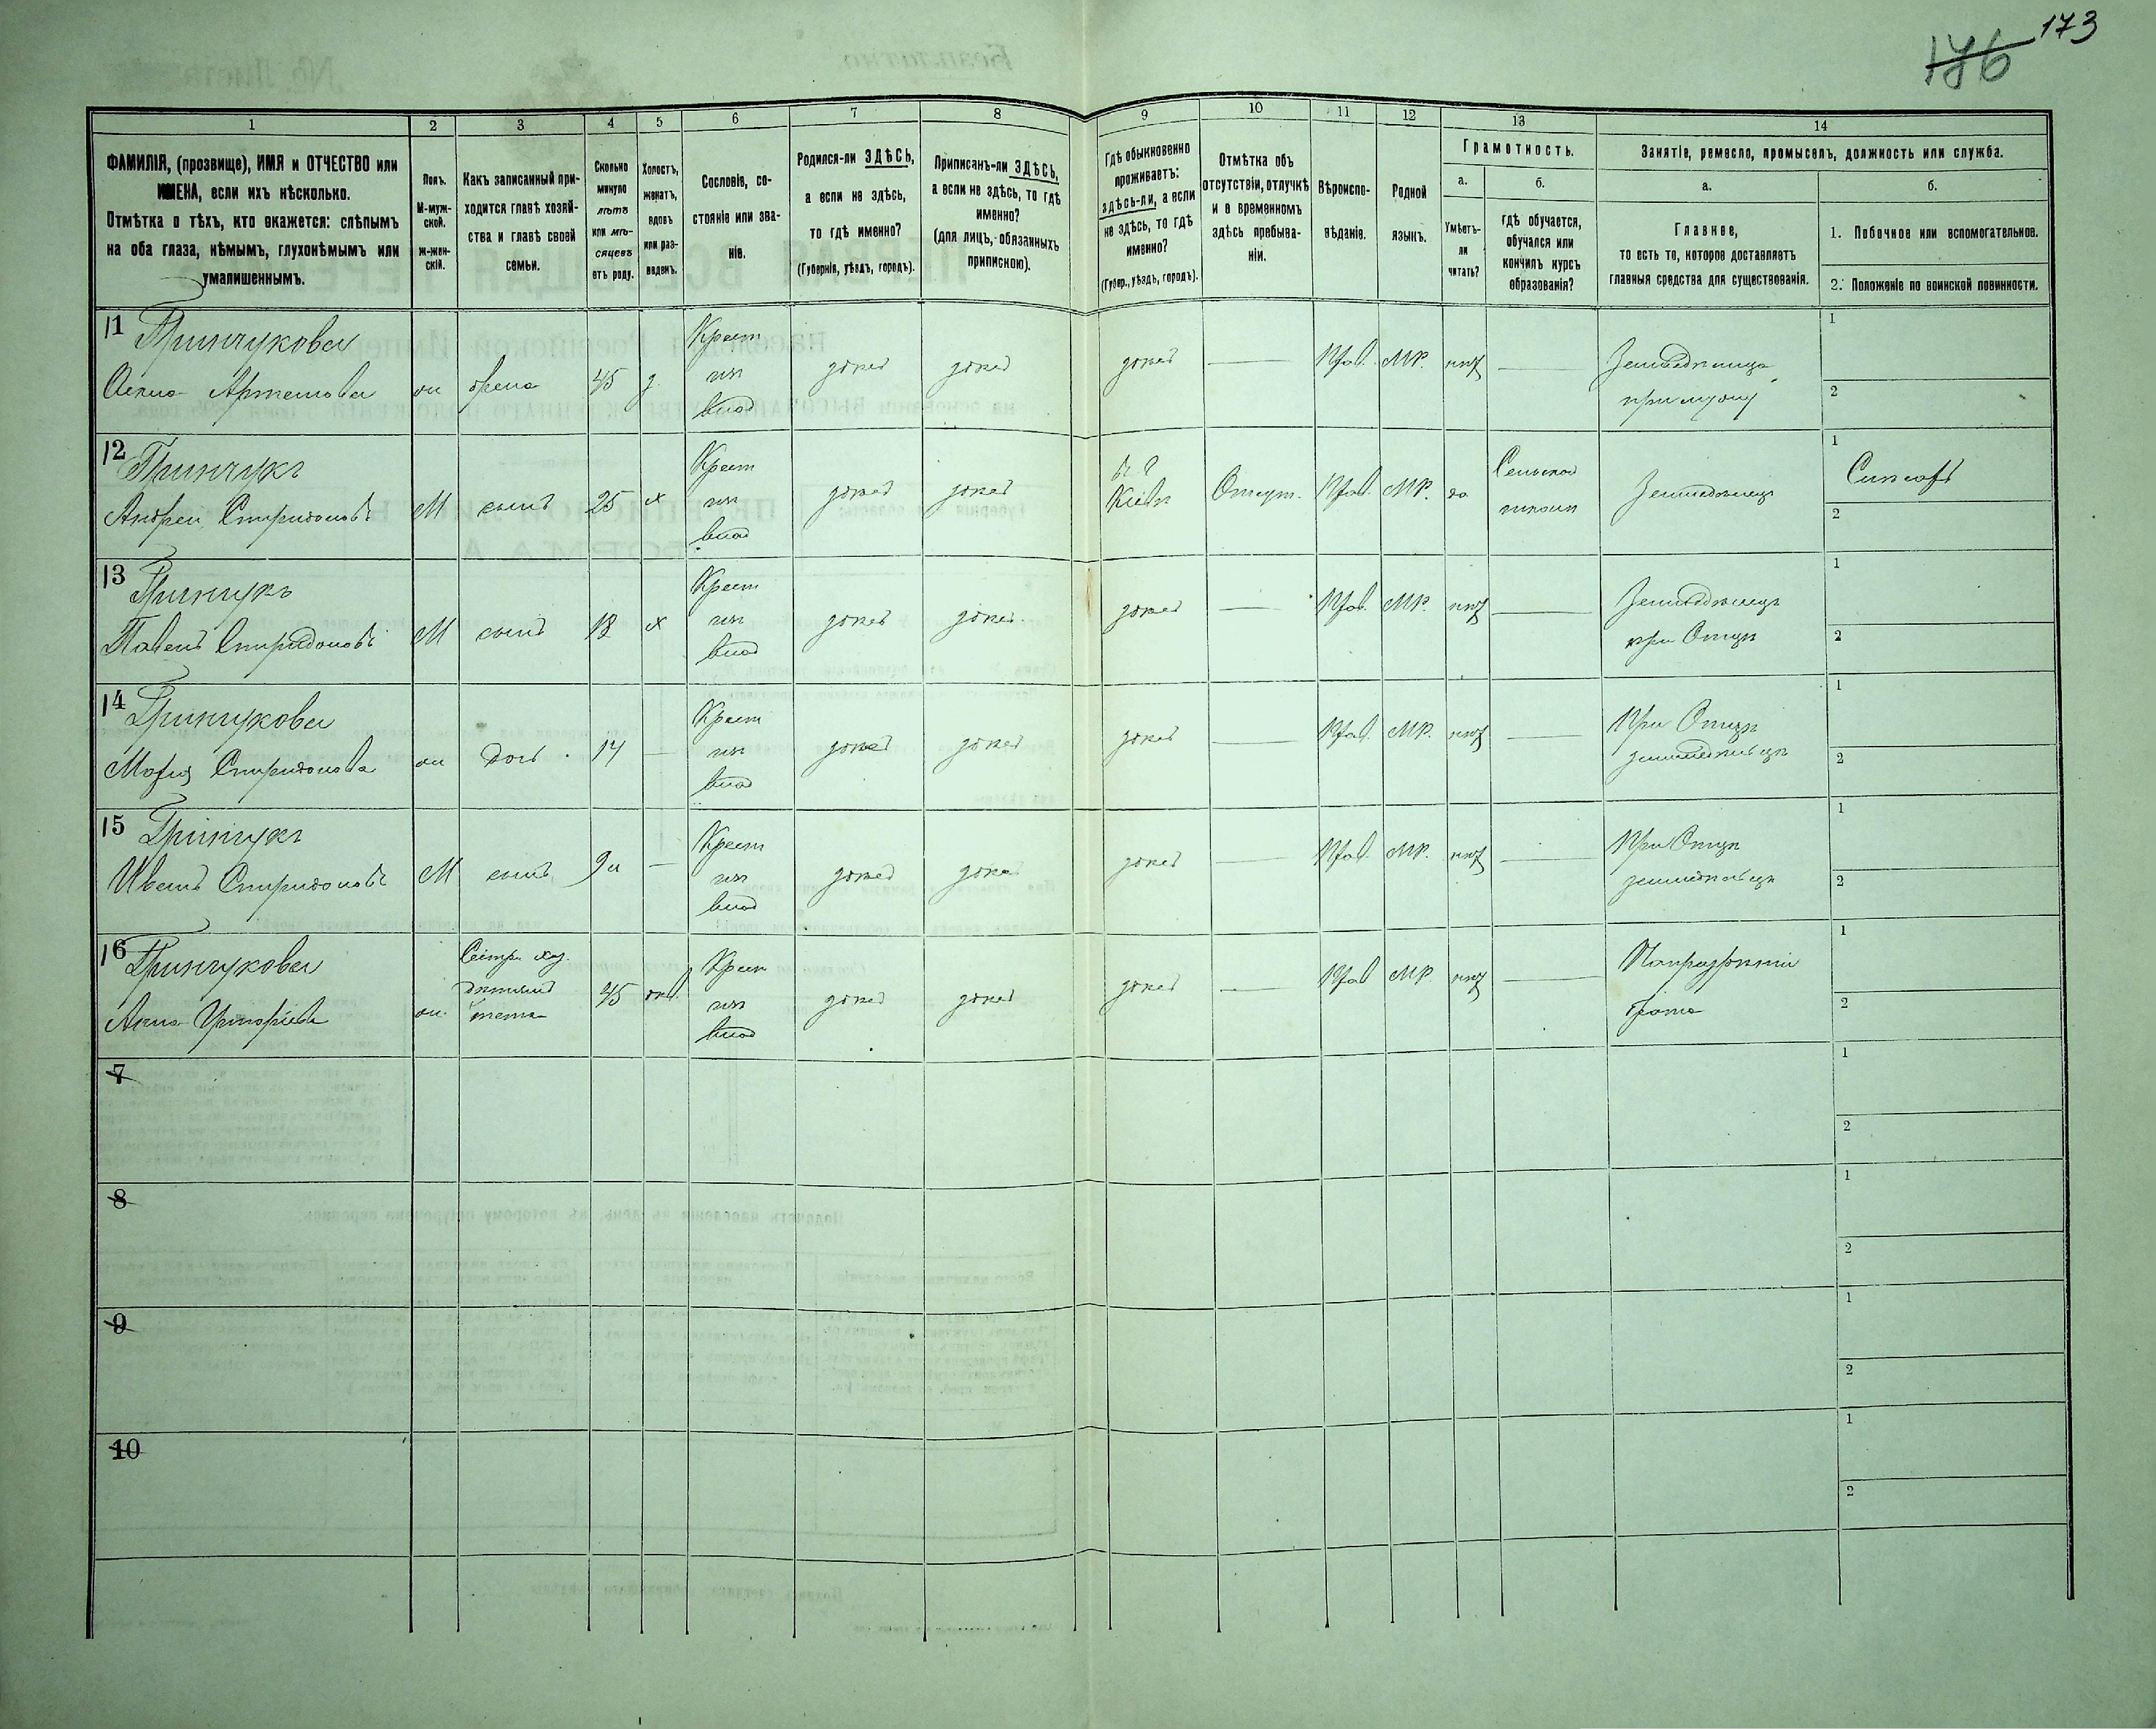 173
176
1 2 3 4 5 6 7 8 9 10 11 12 13 14
ФАМИЛІЯ, (прозвище), ИМЯ и ОТЧЕСТВО или
ИМЕНА, если ихъ нѣсколько.
Отмѣтка о тѣхъ, кто окажется: слѣпымъ
на оба глаза, нѣмымъ, глухонѣмымъ или
умалишеннымъ.
Полъ.
М-муж-
ской.
Ж-жен-
скій.
Какъ записанный при-
ходится главѣ хозяй-
ства и главѣ своей
семьи.
Сколько
минуло
лѣтъ
или мѣ-
сяцевъ
отъ роду.
Холостъ,
женатъ,
вдовъ
или раз-
веденъ.
Сословіе, со-
стояніе или зва-
ніе.
Родился-ли ЗДѢСЬ,
а если не здѣсь,
то гдѣ именно?
(Губернія, уѣздъ, городъ).
Приписанъ-ли ЗДѢСЬ,
а если не здѣсь, то гдѣ
именно?
(для лицъ, обязанныхъ
припискою).
Гдѣ обыкновенно
проживаетъ:
здѣсь-ли, а если
не здѣсь, то гдѣ
именно?
(Губер., уѣздъ, городъ).
Отмѣтка объ
отсутствіи, отлучкѣ
и о временномъ
здѣсь пребыва-
ніи.
Вѣроиспо-
вѣданіе.
Родной
языкъ.
Грамотность.
а.
Умѣетъ-
ли
читать?
б.
гдѣ обучается,
обучался или
кончилъ курсъ
образованія?
Занятіе, ремесло, промыселъ, должность или служба.
а.
Главное,
то есть то, которое доставляетъ
главныя средства для существованія.
б.
1. Побочное или вспомогательное.
2. Положеніе по воинской повинности.
11 Гринчукова
Артемова
жена 45
Крест
здѣсь здѣсь здѣсь — Прав. МР. нѣт —
Земледѣлица
при мужу
1
2
12 Гринчукъ
Андрей Спиридоновъ
М сынъ 25 х
Крест
здѣсь здѣсь
Кіевъ
Отсут. Прав. МР. да
Сельской
школи
Земледѣлец
1
2
13 Гринчукъ
Павелъ Спиридоновъ
М сынъ 18 х
Крест
здѣсь здѣсь здѣсь — Прав. МР. нѣт —
Земледѣлец
при Отцѣ
1
2
14 Гринчукова
Марія Спиридонова
дочь 14 —
Крест
здѣсь здѣсь здѣсь — Прав. МР. нѣт —
При Отцѣ
земледѣльцѣ
1
2
15 Гринчукъ
Иванъ Спиридоновъ
М сынъ 9 —
Крест
здѣсь здѣсь здѣсь — Прав. МР. нѣт —
При Отцѣ
земледѣльцѣ
1
2
16 Гринчукова
Григоріева
45
Крест
здѣсь здѣсь здѣсь — Прав МР. нѣт —
брата
1
2
7
1
2
8
1
2
9
1
2
10
1
2